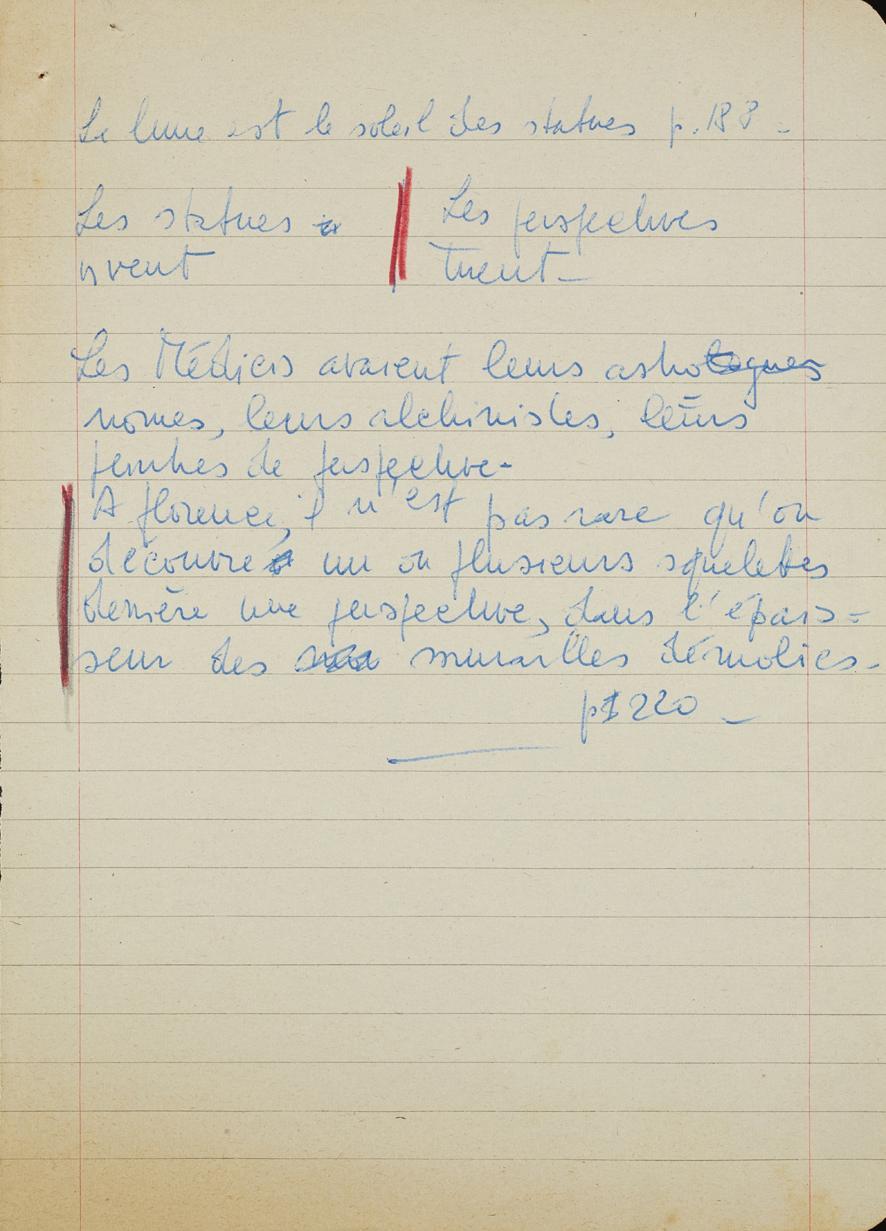 La lune est le soleil des statues p. 188 -
Les statues
vivent
Les perspectives
tuent -
Les Médicis avaient leurs astro
nomes, leurs alchimistes, leurs
peintres de perspective -
A florence, il n'est pas rare qu'on
découvre un ou plusieurs squelettes
derrière une perspective, dans l'épais=
seur des murailles démolies -
p 220 -